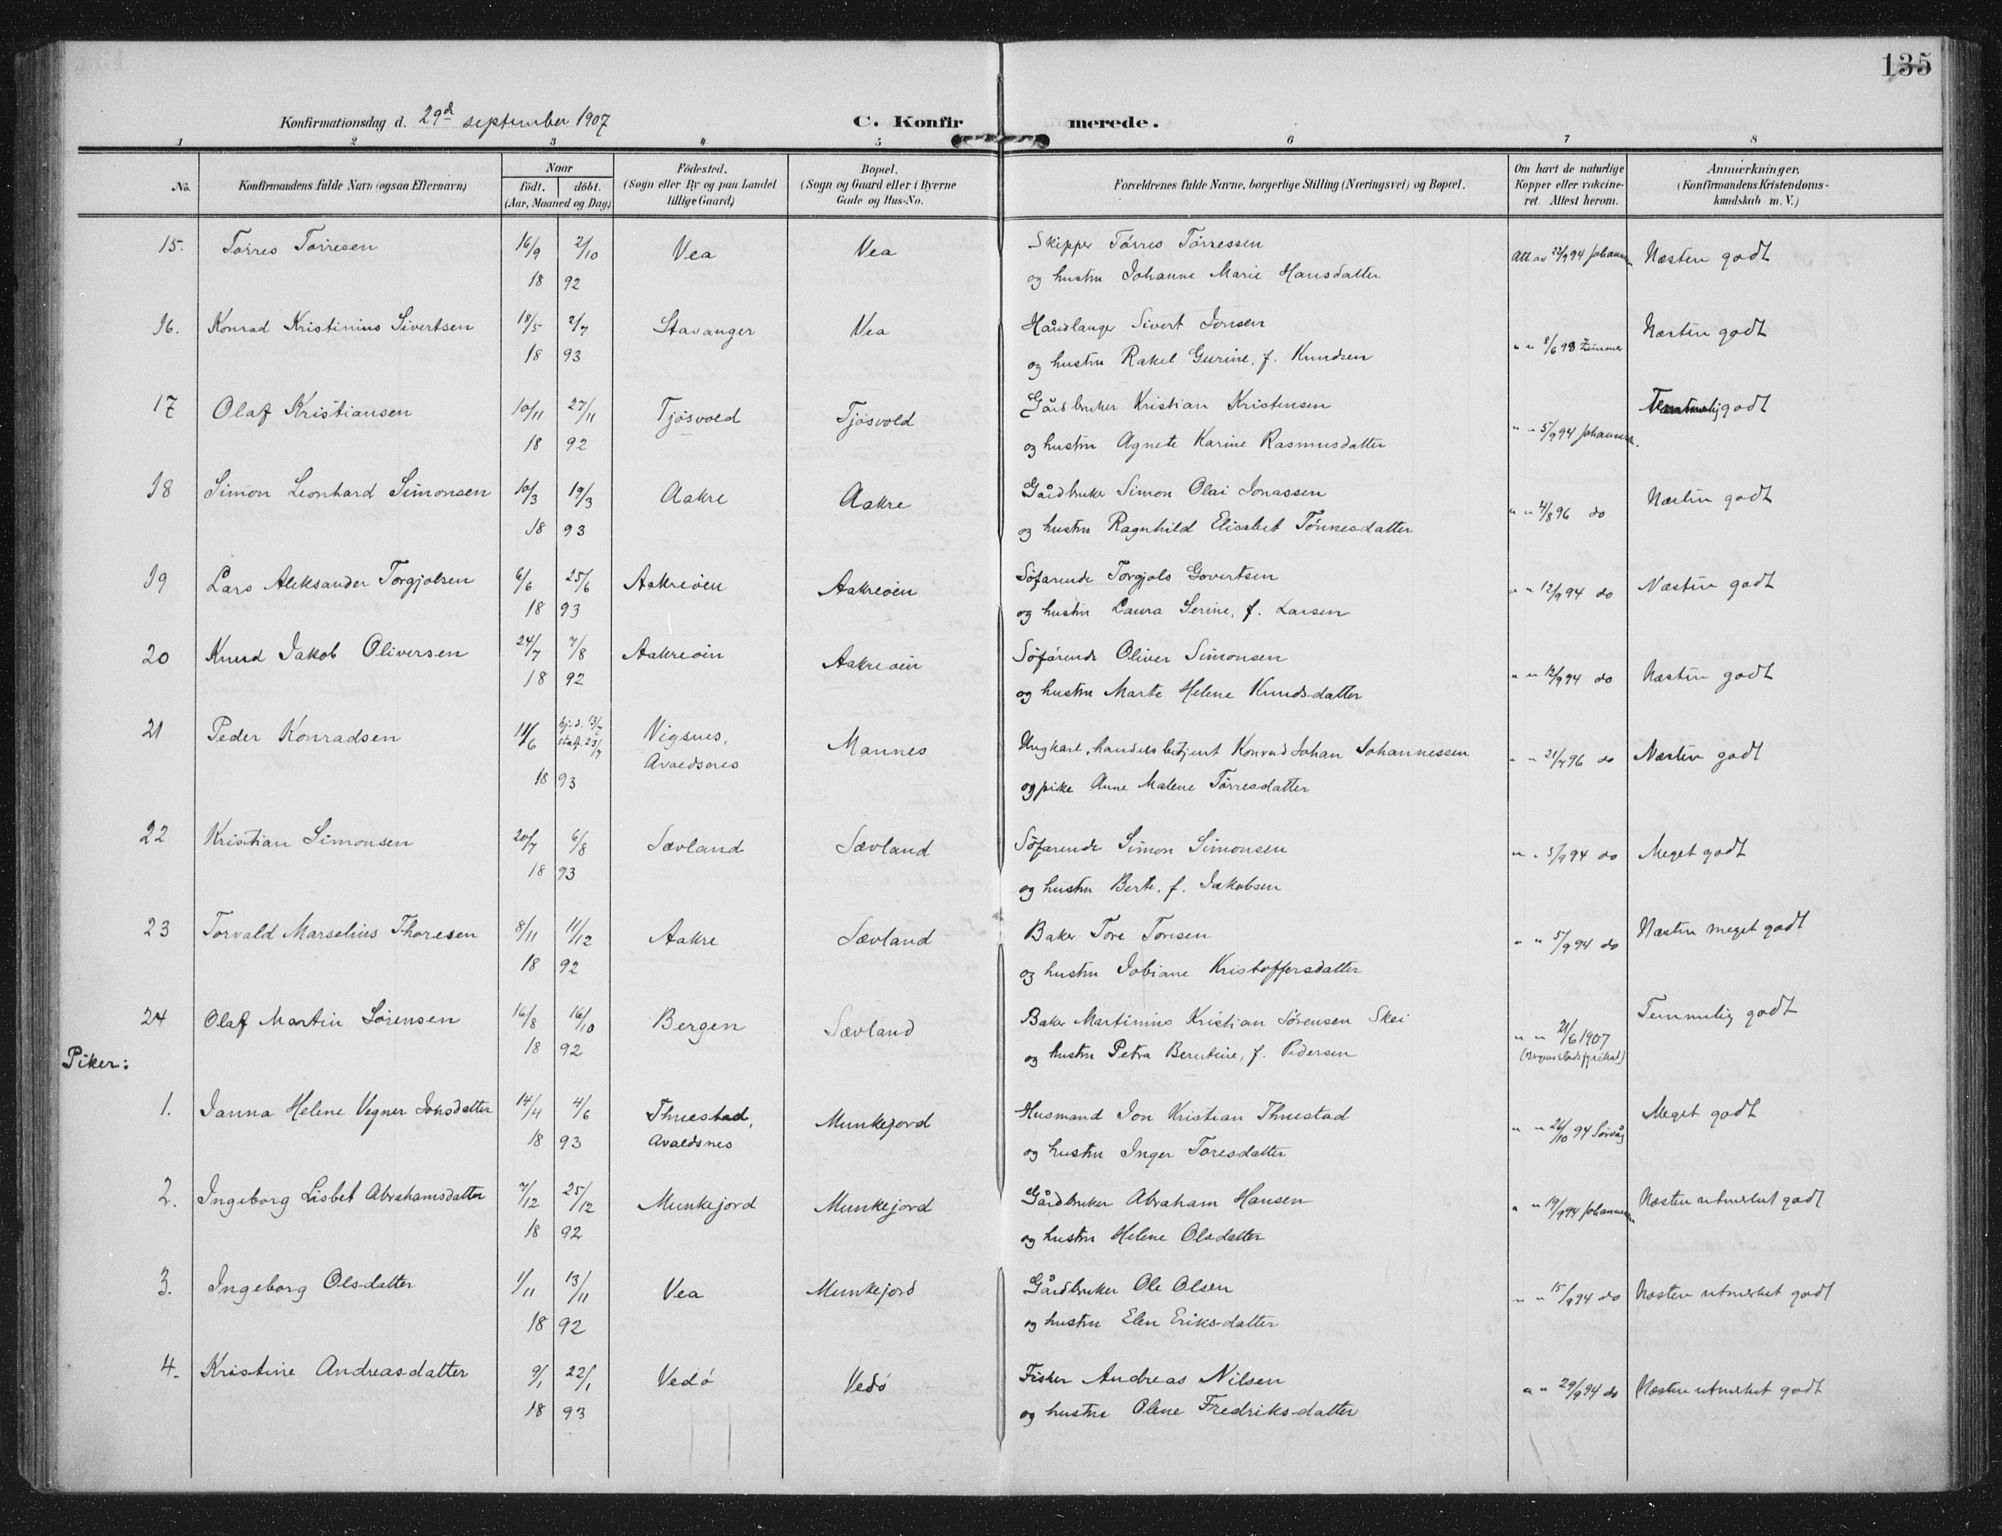 135
Konfirmationsdag d. 29d september 1907 C. Konfirmerede.
1 2 3 4 5 6 7 8
No. Konfirmandens fulde Navn (ogsaa Efternavn) Naar født. døbt. (Aar, Maaned og Dag) Födested. (Sogn eller By og paa Landet tillige Gaard) Bopæl. (Sogn og Gaard eller i Byerne Gade og Hus-No. Forældrenes fulde Navne, borgerlige Stilling (Næringsvei) og Bopæl. Om havt de naturlige Kopper eller vakcineret. Attest herom. Anmærkninger. (Konfirmandens Kristendomskundskab m. V.)
15. Tørres Tørresen 16/9 2/10 Vea Vea Skipper Tørres Tørressen Att av 22/9 94 Johannesen Næsten godt
18 92 og hustru Johanne Marie Hansdatter
16. Konrad Kristinius Sivertsen 18/5 2/7 Stavanger Vea Håndlanger Sivert Jonsen Næsten godt
18 93 og hustru Rakel Gurine, f. Knudsen " " 8/6 93 Zimmer
17 Olaf Kristiansen 10/11 27/11 Tjøsvold Tjøsvold Gårdbruker Kristian Kristensen Temmelig godt
18 92 og hustru Agnete Karine Rasmusdatter " " 5/9 94 Johannesen.
18 Simon Leonhard Simonsen 10/3 19/3 Aakre Aakre Gårdbruker Simon Olai Jonassen Næsten godt
18 93 og hustru Ragnhild Elisabet Tønnesdatter " " 4/8 96 do
19 Lars Aleksander Torgjolsen 6/6 25/6 Aakreøen Aakreøen Søfarende Torgjols Govertsen " " 12/9 94 do Næsten godt
18 93 og hustru Laura Serine, f. Larsen
20 Knud Jakob Oliversen 24/7 7/8 Aakreøen Aakreøen Søfarende Oliver Simonsen " " 12/9 94 do Næsten godt
18 92 og hustru Marte Helene Knudsdatter
21 Peder Konradsen 11/6 hjd. 13/7 staf. 23/7 Vigsnes, Avaldsnes Mannes Ungkarl, handelsbetjent Konrad Johan Johannessen " " 21/4 96 do Næsten godt
18 93 og pike Anne Malene Tørresdatter
22 Kristian Simonsen 20/7 6/8 Sævland Sævland Søfarende Simon Simonsen " " 5/9 94 do Meget godt
18 93 og hustru Berte, f. Jakobsen
23 Torvald Marselius Thoresen 8/11 11/12 Aakre Sævland Baker Tore Toresen " " 5/9 94 do Næsten meget godt
18 92 og hustru Tobiane Kristoffersdatter
24 Olaf Martin Sørensen 16/8 16/10 Bergen Sævland Baker Martinius Kristian Sørensen Skei " " 21/6 1907 Temmelig godt
18 92 og hustru Petra Berntine, f. Pedersen
Piker:
1. Janna Helene Vegner Jonsdatter 14/4 4/6 Thuestad, Avaldsnes Munkejord Husmand Jon Kristian Thuestad " " 26/10 94 Sørvåg Meget godt
18 93 og hustru Inger Toresdatter
2. Ingeborg Lisbet Abrahamsdatter 7/12 25/12 Munkejord Munkejord Gårdbruker Abraham Hansen " " 19/9 94 Johannesen Næsten utmerket godt
18 92 og hustru Helene Olsdatter
3. Ingeborg Olsdatter 1/11 13/11 Vea Munkejord Gårdbruker Ole Olsen " " 15/9 94 do Næsten utmerket godt
18 92 og hustru Elen Eriksdatter
4. Kristine Andreasdatter 9/1 22/1 Vedø Vedø Fisker Andreas Nilsen " " 29/9 94 do Næsten utmerket godt
18 93 og hustru Olene Fredriksdatter